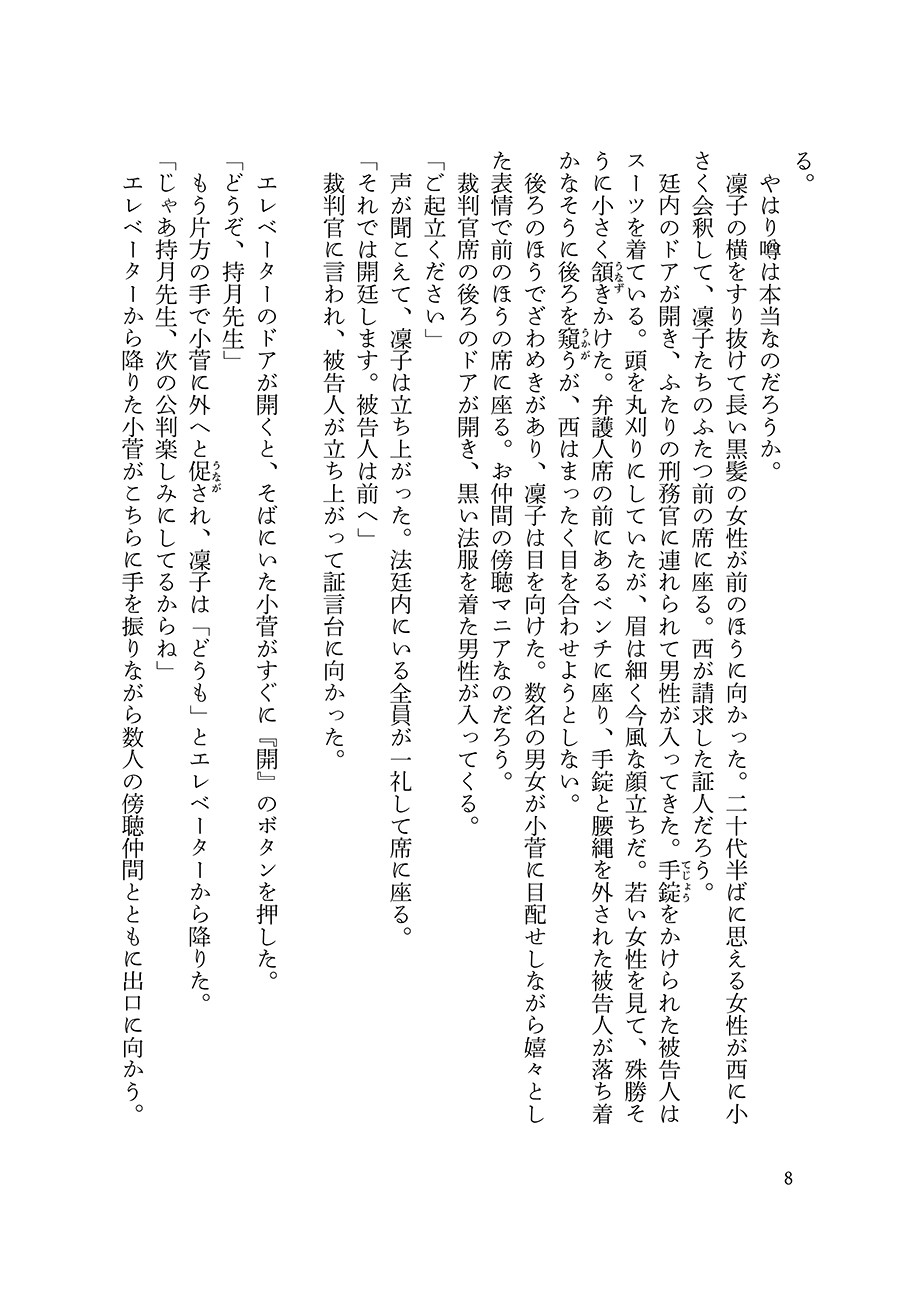 る。
　やはり噂は本当なのだろうか。
　凜子の横をすり抜けて長い黒髪の女性が前のほうに向かった。二十代半ばに思える女性が西に小
さく会釈して、凜子たちのふたつ前の席に座る。西が請求した証人だろう。
　廷内のドアが開き、ふたりの刑務官に連れられて男性が入ってきた。手錠をかけられた被告人は
スーツを着ている。頭を丸刈りにしていたが、眉は細く今風な顔立ちだ。若い女性を見て、殊勝そ
うに小さく頷きかけた。弁護人席の前にあるベンチに座り、手錠と腰縄を外された被告人が落ち着
かなそうに後ろを窺うが、西はまったく目を合わせようとしない。
　後ろのほうでざわめきがあり、凜子は目を向けた。数名の男女が小菅に目配せしながら嬉々とし
た表情で前のほうの席に座る。お仲間の傍聴マニアなのだろう。
　裁判官席の後ろのドアが開き、黒い法服を着た男性が入ってくる。
「ご起立ください」
　声が聞こえて、凜子は立ち上がった。法廷内にいる全員が一礼して席に座る。
「それでは開廷します。被告人は前へ」
　裁判官に言われ、被告人が立ち上がって証言台に向かった。
　エレベーターのドアが開くと、そばにいた小菅がすぐに『開』のボタンを押した。
「どうぞ、持月先生」
　もう片方の手で小菅に外へと促され、凜子は「どうも」とエレベーターから降りた。
「じゃあ持月先生、次の公判楽しみにしてるからね」
　エレベーターから降りた小菅がこちらに手を振りながら数人の傍聴仲間とともに出口に向かう。
てじょう
うなず
うかが
うなが
8